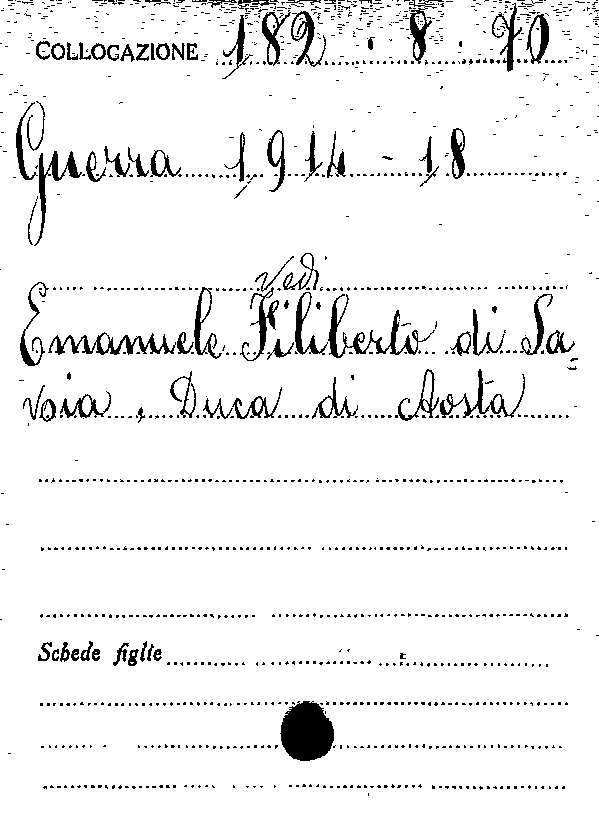 COLLOCAZIONE 182.8.70
Guerra 1914-18
Vedi
Emanuele Filiberto di Sa=
voia, Duca di Aosta
Schede figlie